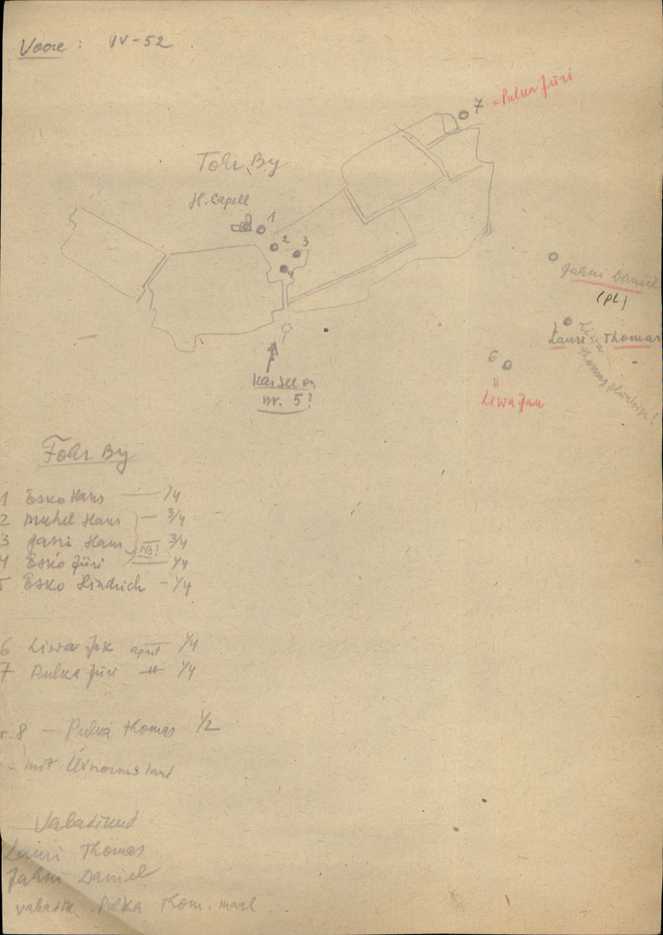 Voore : IV-52
7 - Pulka Jüri
Tohr By
H. Capell
1
2
3
4
Jahni Daniel
(PL)
Lauri Thomas
6
Liwa Jan
Kas see on
nr. 5?
Tohr By
1 Esko Hans — 1/4
2 Mihkel Hans — 3/4
3 Jassi Hans — 3/4
NB!
4 Esko Jüri — 1/4
5 Esko Hindrich - 1/4
6 Liwa Jak 1/4
7 Pulka Jüri —"— 1/4
nr. 8 — Pulka Thomas 1/2
- mit
Vabadikud
Lauri Thomas
Jahni Daniel
vabadik Pulka Tom.